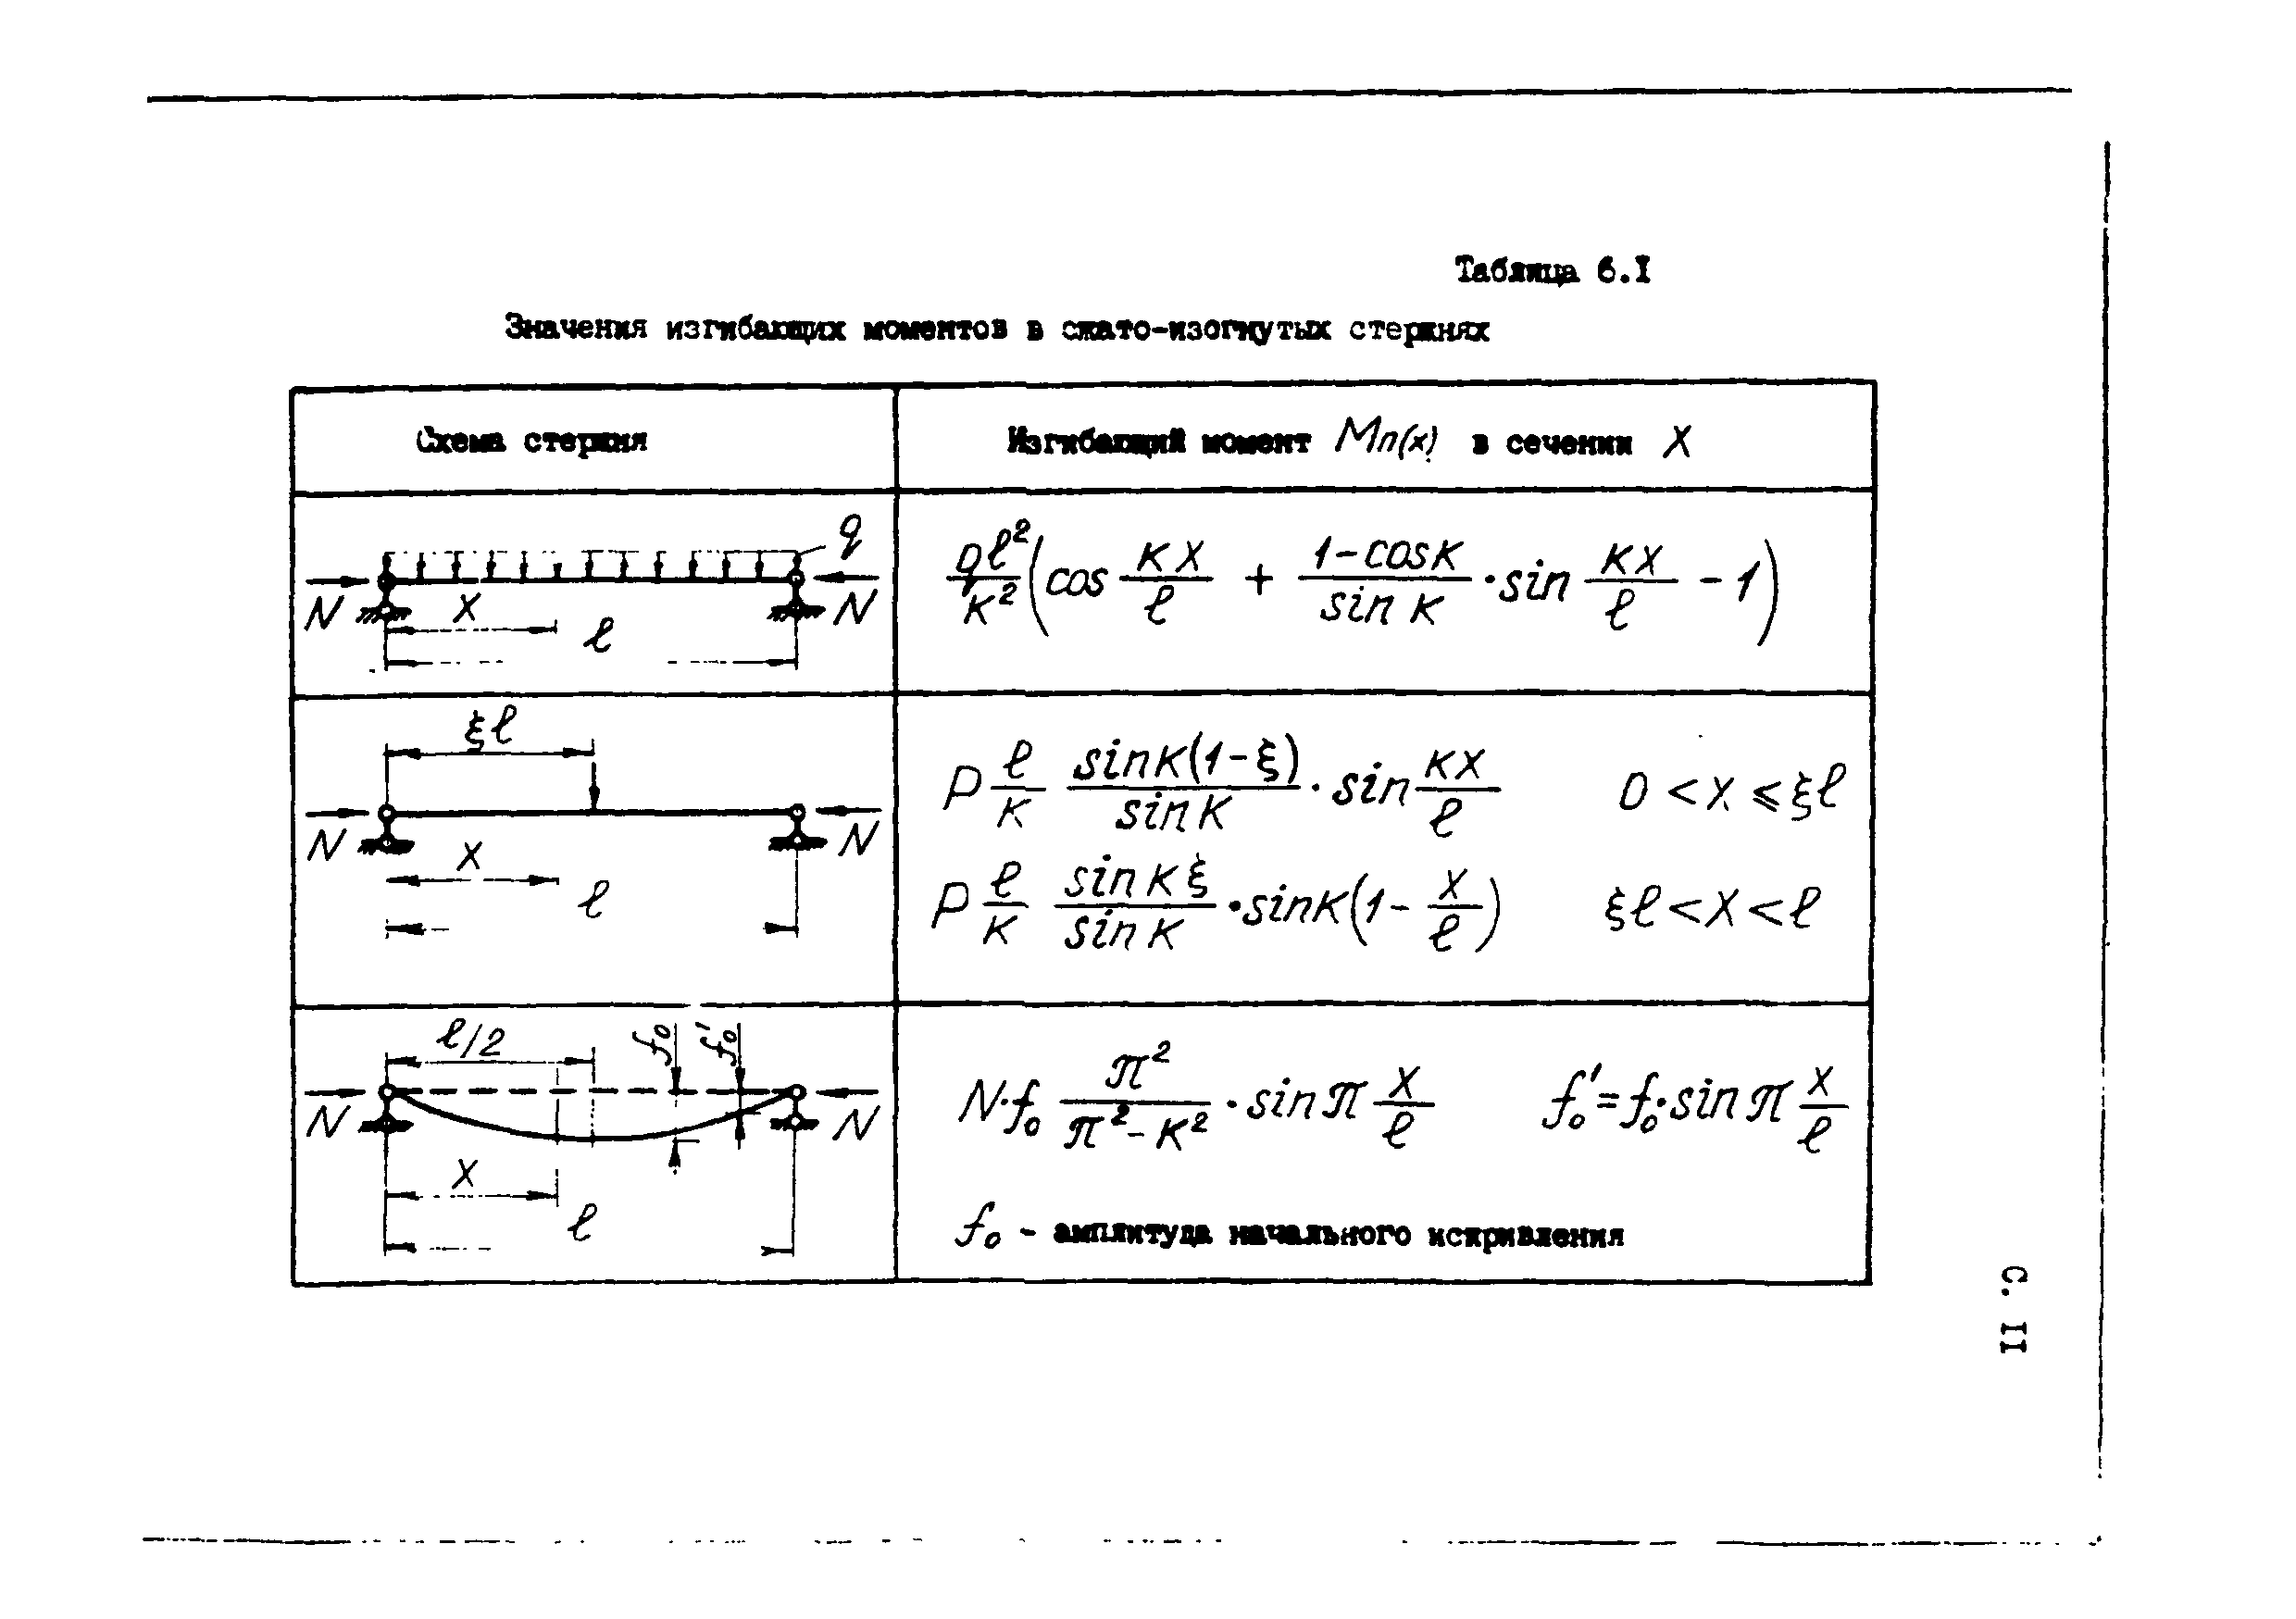 Таблица 6.I
Значения изгибающих моментов в сжато-изогнутых стержнях
Схема стержня
Изгибающий момент Mп(x) в сечении X
q
N
X
ℓ
N
qℓ²/K² (cos KX/ℓ + 1-cosK/sin K · sin KX/ℓ - 1)
ξℓ
N
X
ℓ
N
P ℓ/K sinK(1-ξ)/sin K · sin KX/ℓ 0 < X ⩽ ξℓ
P ℓ/K sin K ξ/sin K · sinK(1 - X/ℓ) ξℓ < X < ℓ
ℓ/2
f₀
f₀'
N
X
ℓ
N
N·f₀ π²/π²-K² · sin π X/ℓ f₀' = f₀·sin π X/ℓ
f₀ - амплитуда начального искривления
С. II